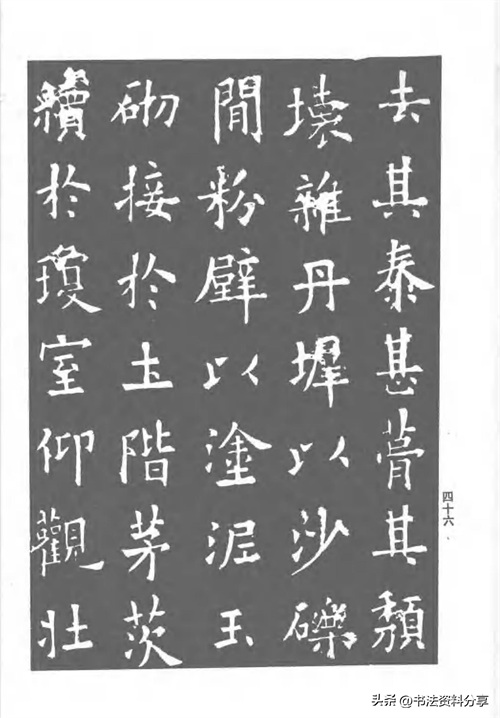 去其泰甚葺其頹
壞雜丹墀以沙礫
閒粉壁以塗泥玉
砌接於土階茅茨
續於瓊室仰觀壯
四十六
头条 @书法资料分享